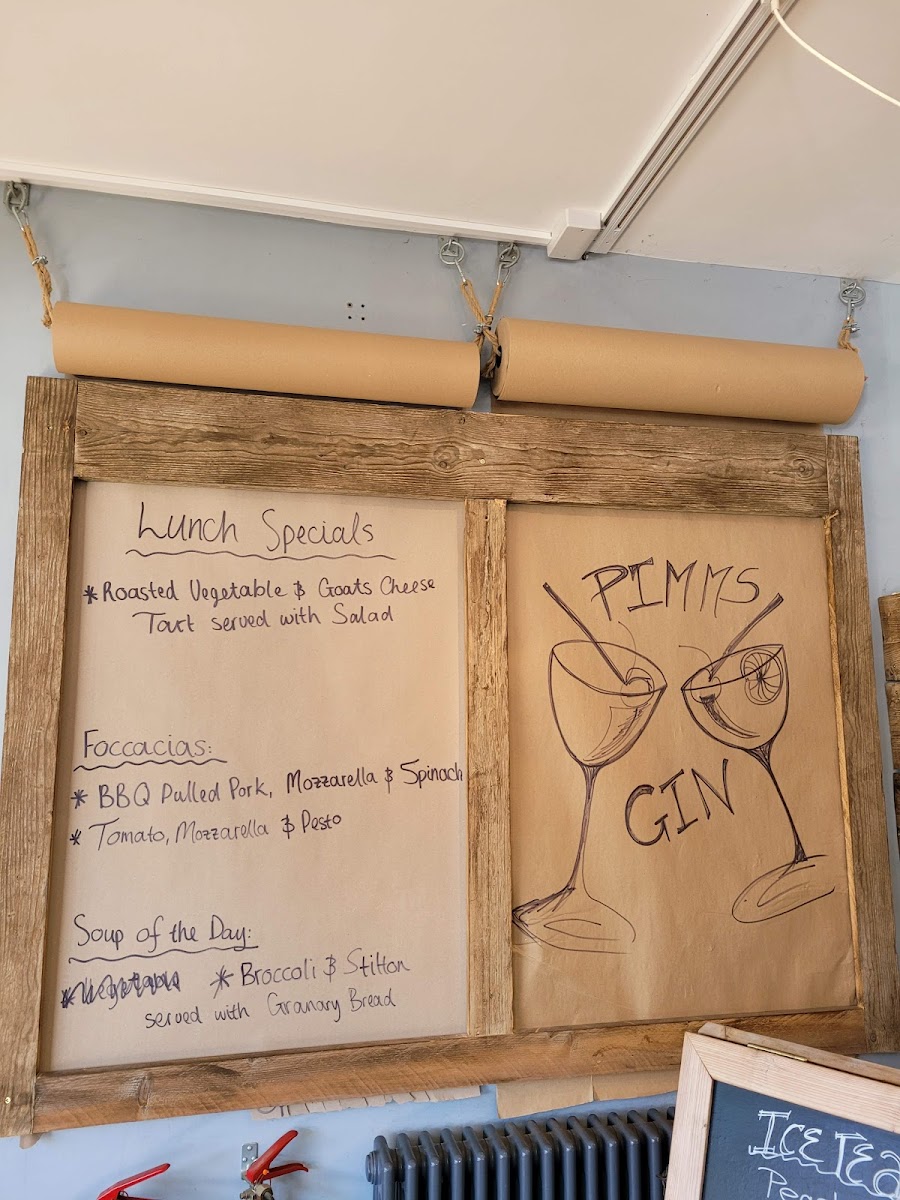 Lunch Specials
*Roasted Vegetable & Goats Cheese
Tart served with Salad
Foccacias:
* BBQ Pulled Pork, Mozzarella & Spinach
* Tomato, Mozzarella & Pesto
Soup of the Day:
*Vegetable * Broccoli & Stilton
served with Granary Bread
PIMMS
GIN
ICE TEA